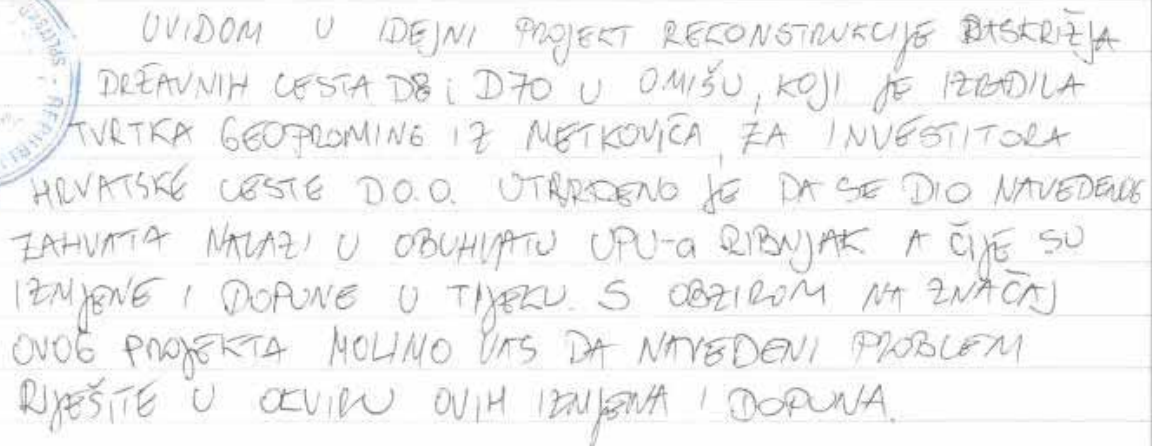 UVIDOM U IDEJNI PROJEKT REKONSTRUKCIJE RASKRIŽJA
DRŽAVNIH CESTA D8 i D70 U OMIŠU, KOJI JE IZRADILA
TVRTKA GEOPROMING IZ METKOVIĆA, ZA INVESTITORA
HRVATSKE CESTE D.O.O. UTVRĐENO JE DA SE DIO NAVEDENOG
ZAHVATA NALAZI U OBUHVATU UPU-a RIBNJAK A ČIJE SU
IZMJENE I DOPUNE U TIJEKU. S OBZIROM NA ZNAČAJ
OVOG PROJEKTA MOLIMO VAS DA NAVEDENI PROBLEM
RIJEŠITE U OKVIRU OVIH IZMJENA I DOPUNA.